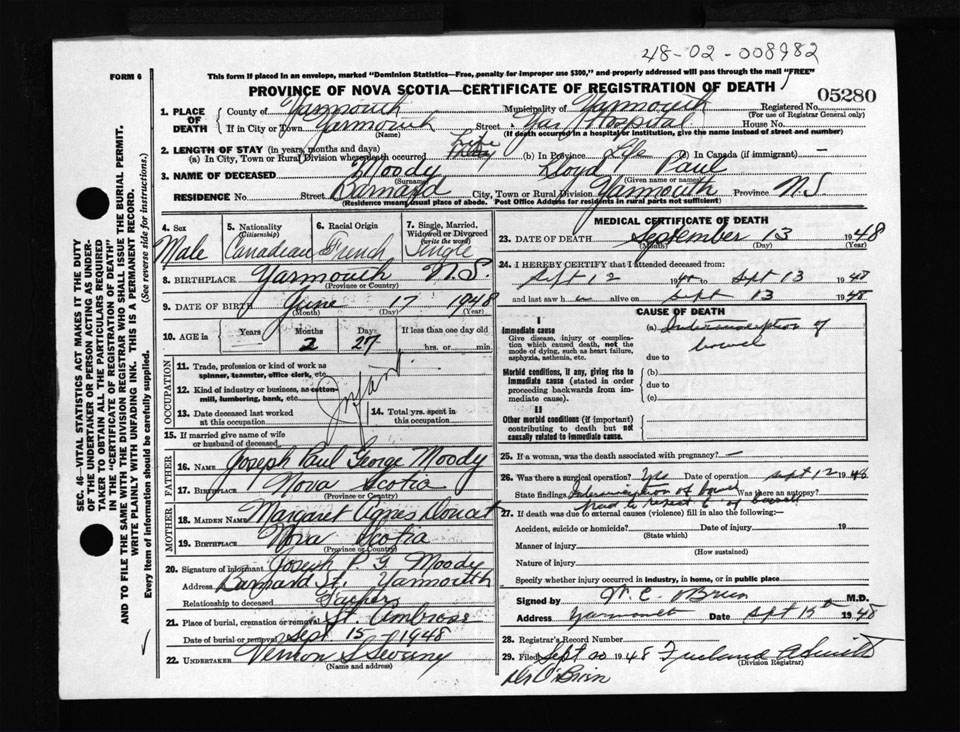 48-02-008982
FORM 6
This form if placed in an envelope, marked "Dominion Statistics—Free, penalty for improper use $300," and properly addressed will pass through the mail "FREE"
PROVINCE OF NOVA SCOTIA—CERTIFICATE OF REGISTRATION OF DEATH
05280
1. PLACE OF DEATH
County of Yarmouth Municipality of Yarmouth Registered No.
(For use of Registrar General only)
If in City or Town Yarmouth Street Yar Hospital House No.
(Name) (If death occurred in a hospital or institution, give the name instead of street and number)
2. LENGTH OF STAY (in years, months and days)
(a) In City, Town or Rural Division where death occurred Life (b) in Province Life (c) In Canada (if immigrant) —
3. NAME OF DECEASED Moody Lloyd Paul
(Surname) (Given name or names)
RESIDENCE No. Street Barnard City, Town or Rural Division Yarmouth Province N.S.
(Residence means usual place of abode. Post Office Address for residents in rural parts not sufficient)
4. Sex
Male
5. Nationality
(Citizenship)
Canadian
6. Racial Origin
French
7. Single, Married, Widowed or Divorced
(write the word)
Single
8. BIRTHPLACE Yarmouth N.S.
(Province or Country)
9. DATE OF BIRTH June 17 1948
(Month) (Day) (Year)
10. AGE in
Years
Months
2
Days
27
If less than one day old
hrs. or min.
OCCUPATION
11. Trade, profession or kind of work as
spinner, teamster, office clerk, etc.
12. Kind of industry or business, as cotton-
mill, lumbering, bank, etc.
Infant
13. Date deceased last worked
at this occupation
14. Total yrs. spent in
this occupation
15. If married give name of wife
or husband of deceased
FATHER
16. NAME Joseph Paul George Moody
17. BIRTHPLACE Nova Scotia
(Province or Country)
MOTHER
18. MAIDEN NAME Margaret Agnes Doucet
19. BIRTHPLACE Nova Scotia
(Province or Country)
20. Signature of informant Joseph P. G. Moody
Address Barnard St. Yarmouth
Relationship to deceased Father
21. Place of burial, cremation or removal St. Ambrose
Date of burial or removal Sept 15 1948
22. UNDERTAKER Vernon S Sweeny
(Name and address)
MEDICAL CERTIFICATE OF DEATH
23. DATE OF DEATH September 13 1948
(Month) (Day) (Year)
24. I HEREBY CERTIFY that I attended deceased from:
Sept 12 1948 to Sept 13 1948
and last saw h alive on Sept 13 1948
CAUSE OF DEATH
I
Immediate cause
Give disease, injury or complication which caused death, not the mode of dying, such as heart failure, asphyxia, asthenia, etc.
(a) Intussusception of
bowel
due to
Morbid conditions, if any, giving rise to immediate cause (stated in order proceeding backwards from immediate cause).
(b)
due to
(c)
II
Other morbid conditions (if important) contributing to death but not causally related to immediate cause.
25. If a woman, was the death associated with pregnancy? —
26. Was there a surgical operation? Yes Date of operation Sept 12 1948
State findings Intussusception of bowel Was there an autopsy?
Had to resect 6" of bowel
27. If death was due to external causes (violence) fill in also the following:
Accident, suicide or homicide? Date of injury 19
(State which)
Manner of injury
(How sustained)
Nature of injury
Specify whether injury occurred in industry, in home, or in public place
Signed by W. C. O'Brien M.D.
Address Yarmouth Date Sept 15th 1948
28. Registrar's Record Number
29. Filed Sept 20 1948 Freeland A Smith
(Division Registrar)
Dr O'Brien
SEC. 46—VITAL STATISTICS ACT MAKES IT THE DUTY
OF THE UNDERTAKER OR PERSON ACTING AS UNDERTAKER TO OBTAIN ALL THE PARTICULARS REQUIRED
IN THE "CERTIFICATE OF REGISTRATION OF DEATH"
AND TO FILE THE SAME WITH THE DIVISION REGISTRAR WHO SHALL ISSUE THE BURIAL PERMIT.
WRITE PLAINLY WITH UNFADING INK. THIS IS A PERMANENT RECORD.
Every item of information should be carefully supplied. (See reverse side for instructions.)